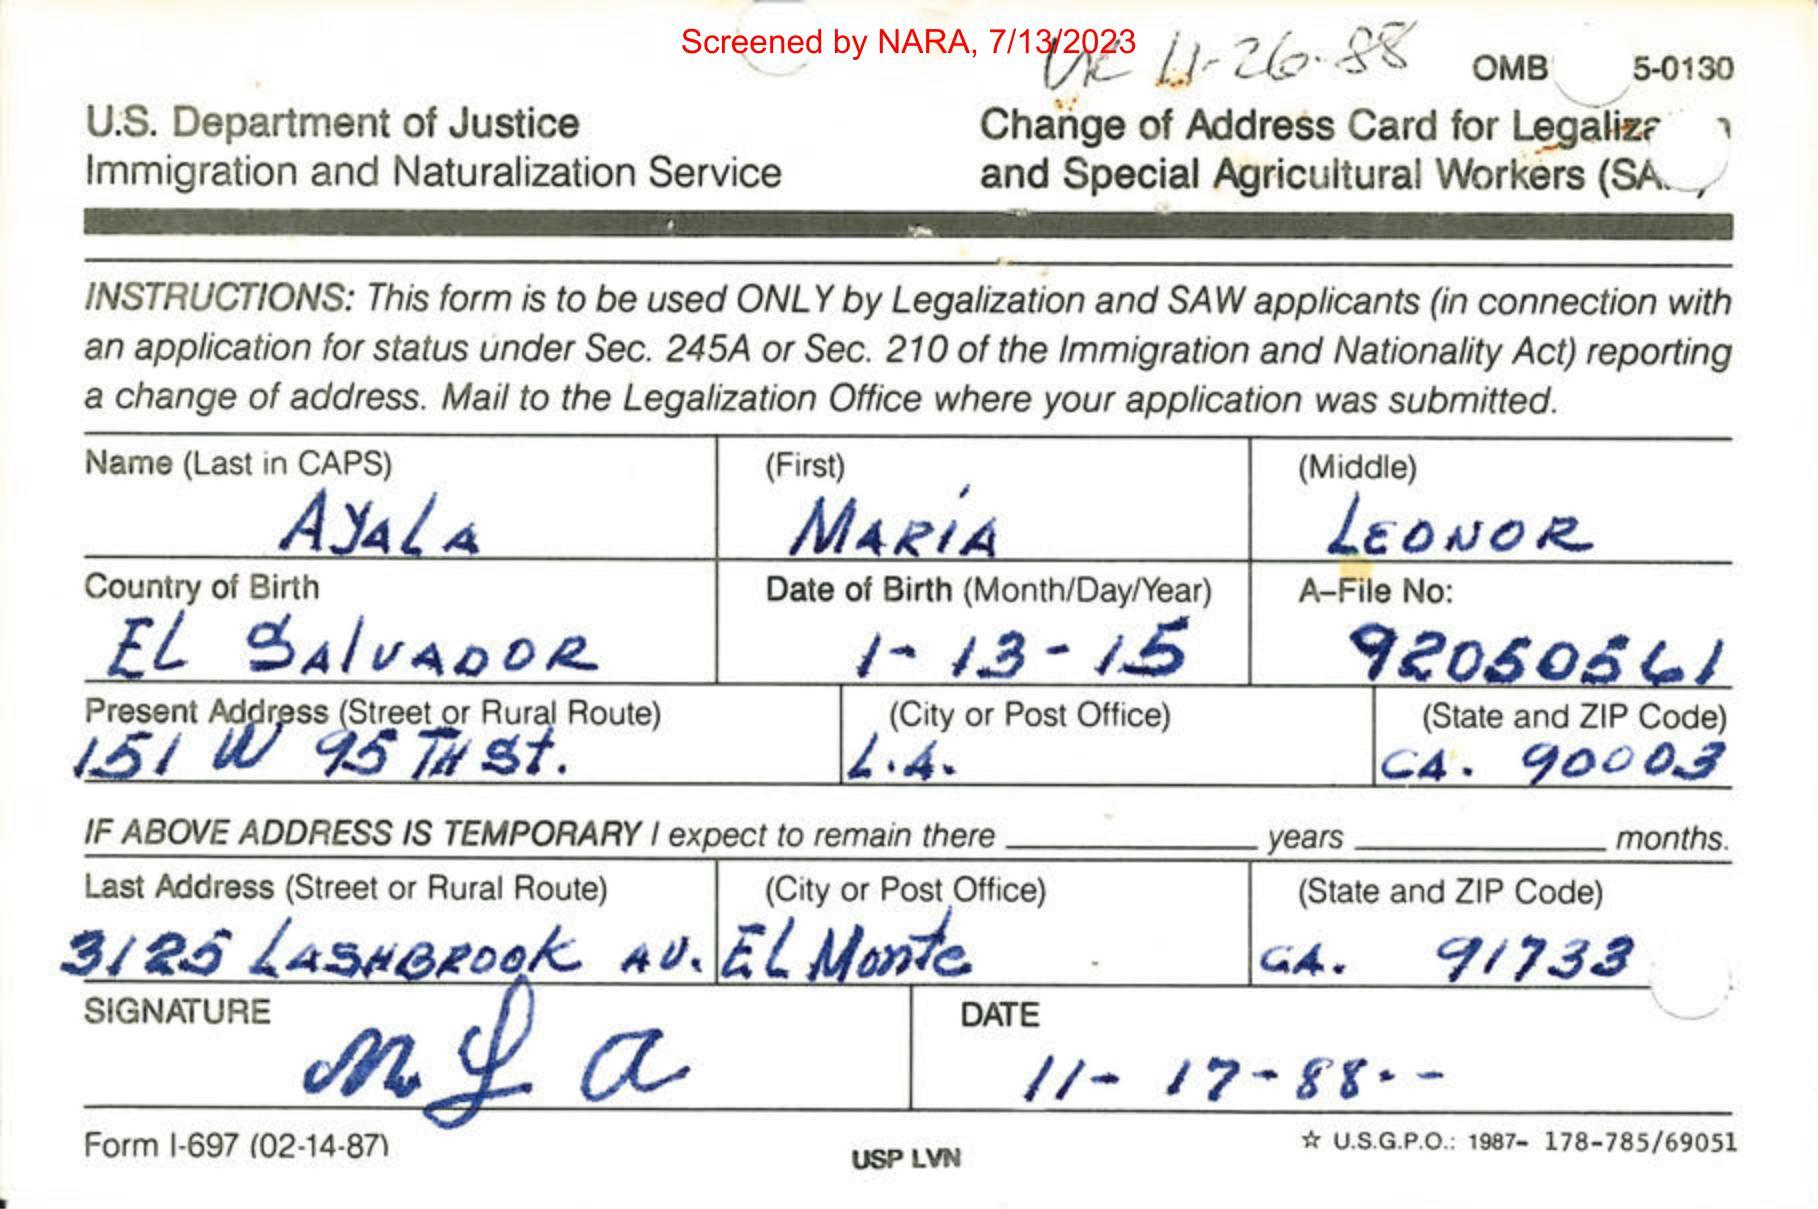 Screened by NARA, 7/13/2023
11-26-88
OMB 5-0130
U.S. Department of Justice
Immigration and Naturalization Service
Change of Address Card for
and Special Agricultural Workers
INSTRUCTIONS: This form is to be used ONLY by Legalization and SAW applicants (in connection with
an application for status under Sec. 245A or Sec. 210 of the Immigration and Nationality Act) reporting
a change of address. Mail to the Legalization Office where your application was submitted.
Name (Last in CAPS) (First) (Middle)
AYALA MARÍA LEONOR
Country of Birth Date of Birth (Month/Day/Year) A–File No:
EL SALVADOR 1-13-15 92050561
Present Address (Street or Rural Route) (City or Post Office) (State and ZIP Code)
151 W 95 TH St. L.A. CA. 90003
IF ABOVE ADDRESS IS TEMPORARY I expect to remain there years months.
Last Address (Street or Rural Route) (City or Post Office) (State and ZIP Code)
3125 LASHBROOK AV. EL Monte CA. 91733
SIGNATURE DATE
M L A 11-17-88--
Form I-697 (02-14-87)
USP LVN
☆ U.S.G.P.O.: 1987– 178-785/69051